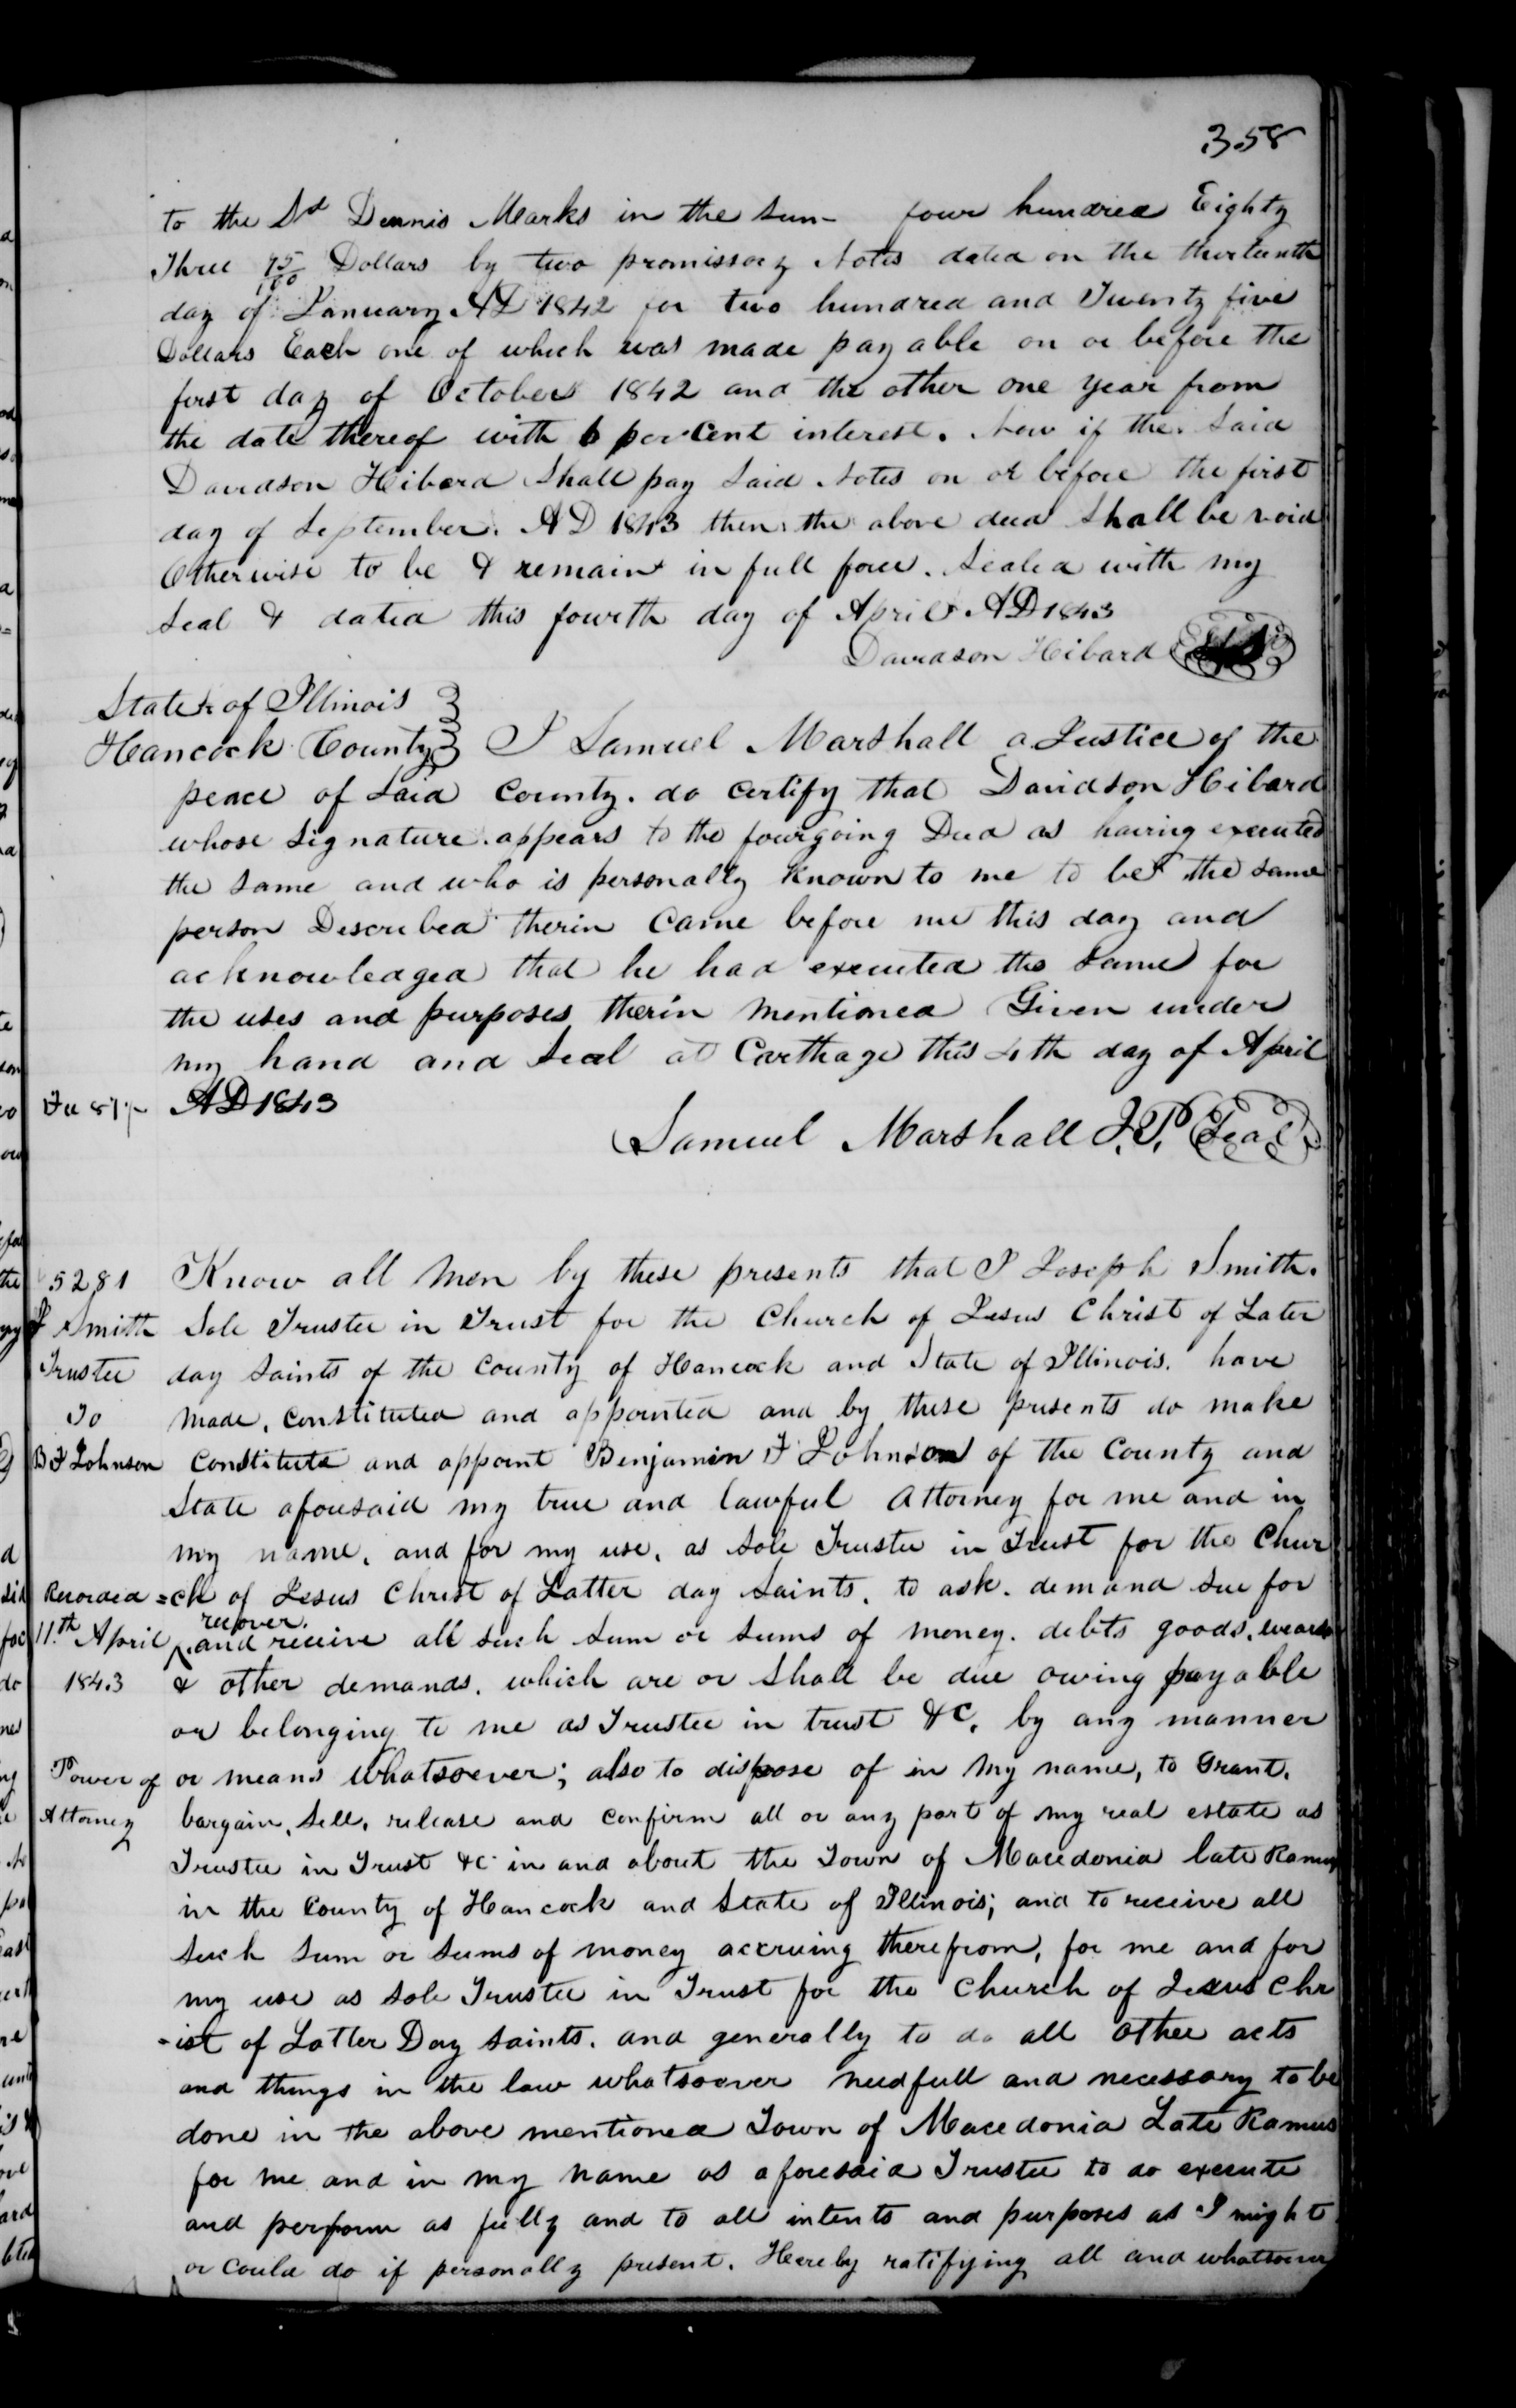 358
to the Sd Dennis Marks in the Sum four hundred Eighty
Three 75/100 Dollars by two promissory Notes dated on the thirteenth
day of January AD 1842 for two hundred and Twenty five
Dollars Each one of which was made payable on or before the
first day of October 1842 and the other one year from
the date thereof with 6 per Cent interest. Now if the Said
Davidson Hibard Shall pay Said Notes on or before the first
day of September. AD 1843 then the above deed Shall be void
Otherwise to be & remain in full force. Sealed with my
Seal & dated this fourth day of April AD 1843
Davidson Hibard
State of Illinois
Hancock County I Samuel Marshall a Justice of the
peace of Said County. do certify that Davidson Hibard
whose Signature appears to the fourgoing Deed as having executed
the Same and who is personally Known to me to be the same
person Described therin Came before me this day and
acknowledged that he had executed the Same for
the uses and purposes therin mentioned Given under
my hand and Seal at Carthage this 4th day of April
AD 1843
Samuel Marshall J.P. Seal
5281 Know all men by these presents that I Joseph Smith.
J Smith Sole Trustee in Trust for the Church of Jesus Christ of Later
Trustee day Saints of the County of Hancock and State of Illinois. have
To made, constituted and appointed and by these presents do make
B F Johnson Constitute and appoint Benjamin F Johnson of the County and
State aforesaid my true and lawful Attorney for me and in
my name, and for my use, as Sole Trustee in Trust for the Chur
Recorded =ch of Jesus Christ of Latter day Saints, to ask. demand Sue for
recover.
11th April and receive all such Sum or Sums of money. debts goods. wears
1843 & other demands. which are or Shall be due owing payable
or belonging to me as Trustee in trust &c, by any manner
Power of or means whatsoever; also to dispose of in my name, to Grant.
Attorney bargain, Sell, release and confirm all or any part of my real estate as
Trustee in Trust &c in and about the Town of Macedonia late Ramus
in the County of Hancock and State of Illinois; and to receive all
Such Sum or Sums of money accruing therefrom, for me and for
my use as Sole Trustee in Trust for the Church of Jesus Chr
-ist of Latter Day Saints. and generally to do all other acts
and things in the law whatsoever needfull and necessary to be
done in the above mentioned Town of Macedonia Late Ramus
for me and in my name as aforesaid Trustee to do execute
and perform as fully and to all intents and purposes as I might
or could do if personally present. Hereby ratifying all and whatsoever